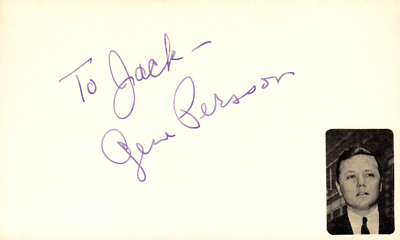 To Jack –
Gene Persson